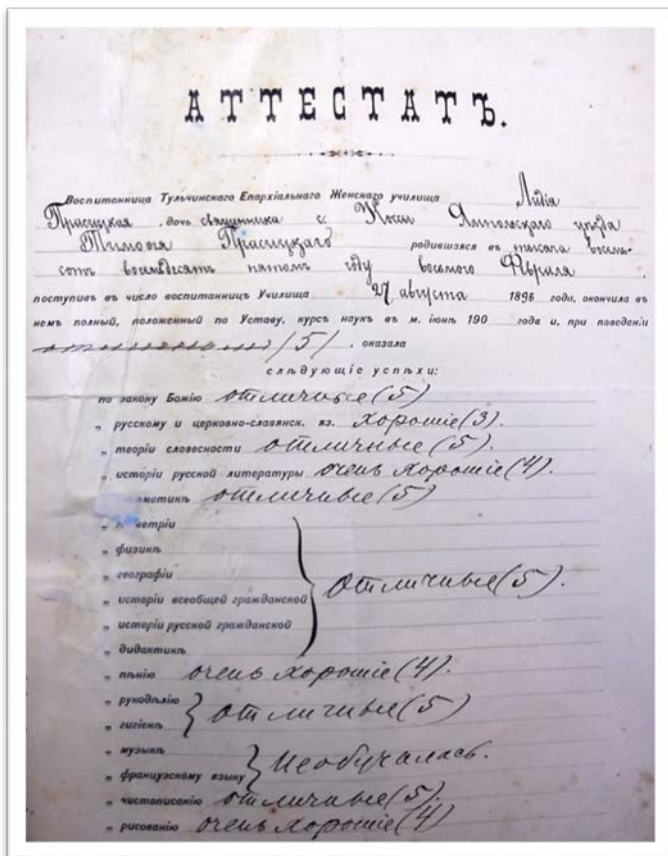 АТТЕСТАТЪ.
Воспитанница Тульчинскаго Епархіальнаго Женскаго училища Лидія
Прасицкая, дочь священника с. Ямпольскаго уѣзда
Тимофея Прасицкаго родившаяся въ тысяча восемь-
сотъ восемьдесятъ пятомъ году восьмого Февраля
поступивъ въ число воспитанницъ Училища 27 августа 1896 года, окончила въ
немъ полный, положенный по Уставу, курсъ наукъ въ м. іюнѣ 190 года и, при поведеніи
отличномъ (5), оказала
слѣдующіе успѣхи:
по закону Божію отличные (5)
„ русскому и церковно-славянск. яз. хорошіе (3).
„ теоріи словесности отличные (5).
„ исторіи русской литературы очень хорошіе (4).
метикѣ отличные (5)
„ метріи
„ физикѣ
„ географіи
„ исторіи всеобщей гражданской
отличные (5).
„ исторіи русской гражданской
„ дидактикѣ
„ пѣнію очень хорошіе (4).
„ рукодѣлію
„ гигіенѣ отличные (5)
„ музыкѣ
„ французскому языку Необучалась.
„ чистописанію отличные (5).
„ рисованію очень хорошіе (4)